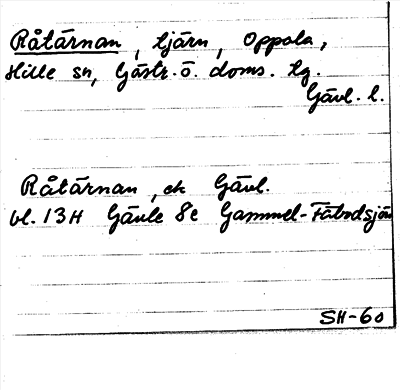 Råtärnan, tjärn, Oppala,
Hille sn, Gästr. ö. doms. lg.
Gävl. l.
Råtärnan, ek Gävl.
bl. 13H Gävle 8c Gammel-Fäbodsjön
SH-60